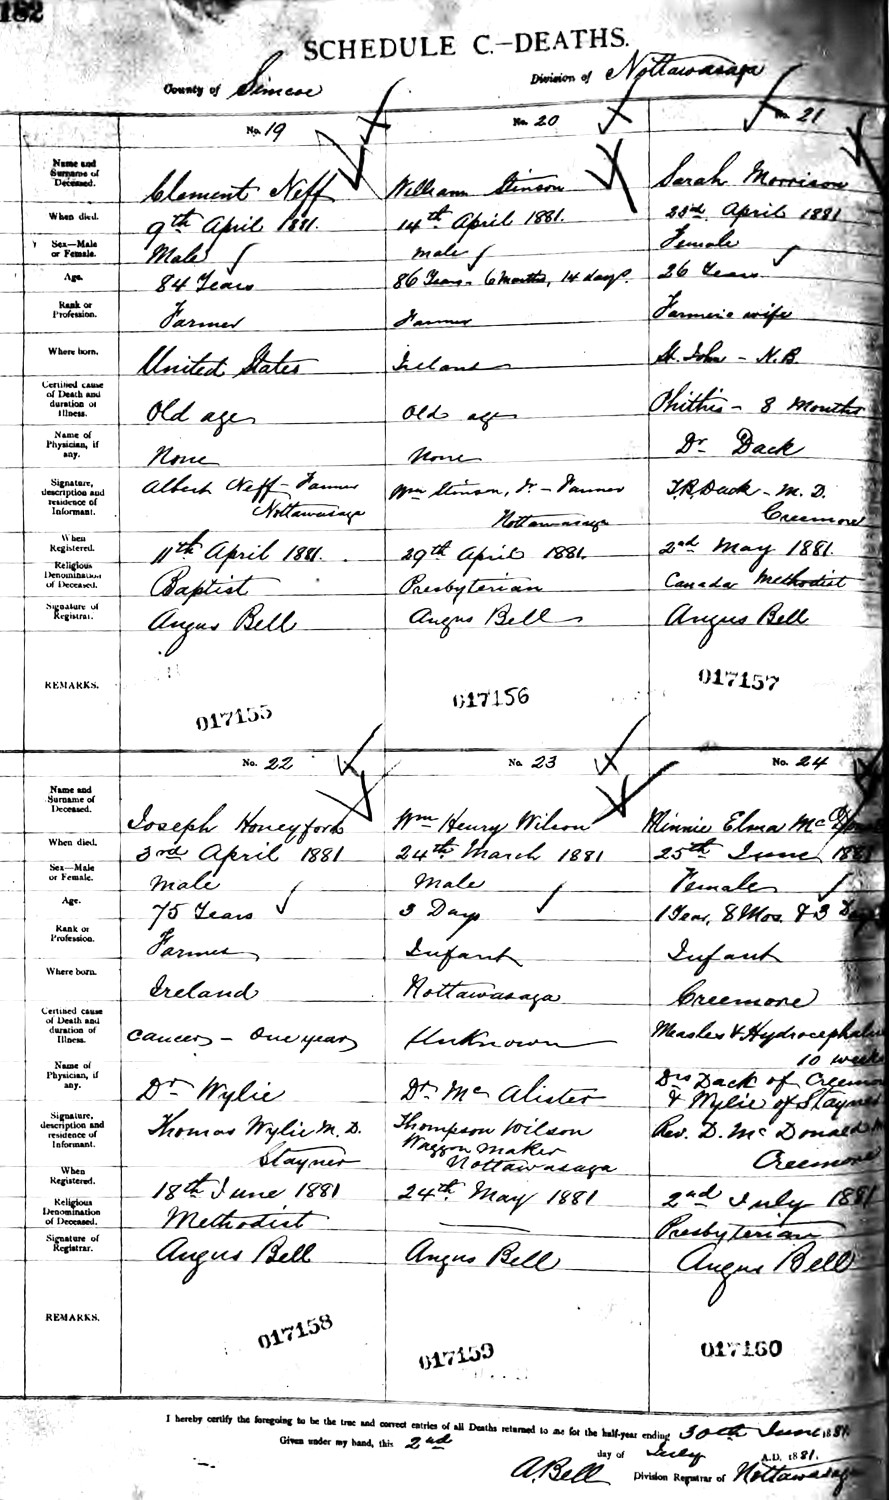 182
SCHEDULE C.—DEATHS.
County of Simcoe
Division of Nottawasaga
No. 19
No. 20
No. 21
Name and Surname of Deceased.
Clement Neff
William Stinson
Sarah Morrison
When died.
9th April 1881.
14th April 1881.
April 1881
Sex—Male or Female.
Male
male
Female
Age.
84 Years
86 Years - 6 Months, 14 days.
26 Years
Rank or Profession.
Farmer
Farmer
Farmers wife
Where born.
United States
Ireland
St. John - N.B.
Certified cause of Death and duration of Illness.
Old age
Old age
Phithis - 8 Months
Name of Physician, if any.
None
None
Dr Dack
Signature, description and residence of Informant.
Albert Neff - Farmer
Nottawasaga
Wm Stinson, Jr - Farmer
Nottawasaga
T.R. Dack - M. D.
Creemore
When Registered.
11th April 1881.
29th April 1881.
2nd May 1881.
Religious Denomination of Deceased.
Baptist
Presbyterian
Canada Methodist
Signature of Registrar.
Angus Bell
Angus Bell
Angus Bell
REMARKS.
017155
017156
017157
No. 22
No. 23
No. 24
Name and Surname of Deceased.
Joseph Honeyford
Wm Henry Wilson
Minnie Elma
When died.
3rd April 1881
24th March 1881
25th June 1881
Sex—Male or Female.
Male
Male
Female
Age.
75 Years
3 Days
1 Year, 8 Mos. & 3 Days
Rank or Profession.
Farmer
Infant
Infant
Where born.
Ireland
Nottawasaga
Creemore
Certified cause of Death and duration of Illness.
Cancer - One year
Unknown
Measles & Hydrocephalus
10 weeks
Name of Physician, if any.
Dr Wylie
Dr McAlister
Drs Dack of Creemore
& Wylie of Stayner
Signature, description and residence of Informant.
Thomas Wylie M. D.
Stayner
Thompson Wilson
Waggon Maker
Nottawasaga
Rev. D. McDonald
Creemore
When Registered.
18th June 1881
24th May 1881
2nd July 1881
Religious Denomination of Deceased.
Methodist
Presbyterian
Signature of Registrar.
Angus Bell
Angus Bell
Angus Bell
REMARKS.
017158
017159
017160
I hereby certify the foregoing to be the true and correct entries of all Deaths returned to me for the half-year ending 30th June 1881.
Given under my hand, this 2nd day of July A.D. 1881.
A. Bell Division Registrar of Nottawasaga